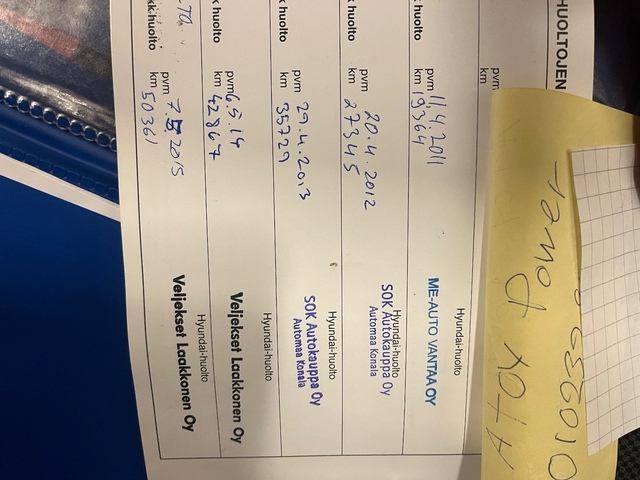 HUOLTOJEN
pvm
km
k huolto
pvm 11.4.2011
km 19364
Hyundai-huolto
ME-AUTO VANTAA OY
k huolto
pvm 20.4.2012
km 27345
Hyundai-huolto
SOK Autokauppa Oy
Automaa Konala
k huolto
pvm 29.4.2013
km 35729
Hyundai-huolto
SOK Autokauppa Oy
Automaa Konala
k huolto
pvm 6.5.14
km 42867
Hyundai-huolto
Veljekset Laakkonen Oy
kk.huolto
pvm 7.5 2015
km 50361
Hyundai-huolto
Veljekset Laakkonen Oy